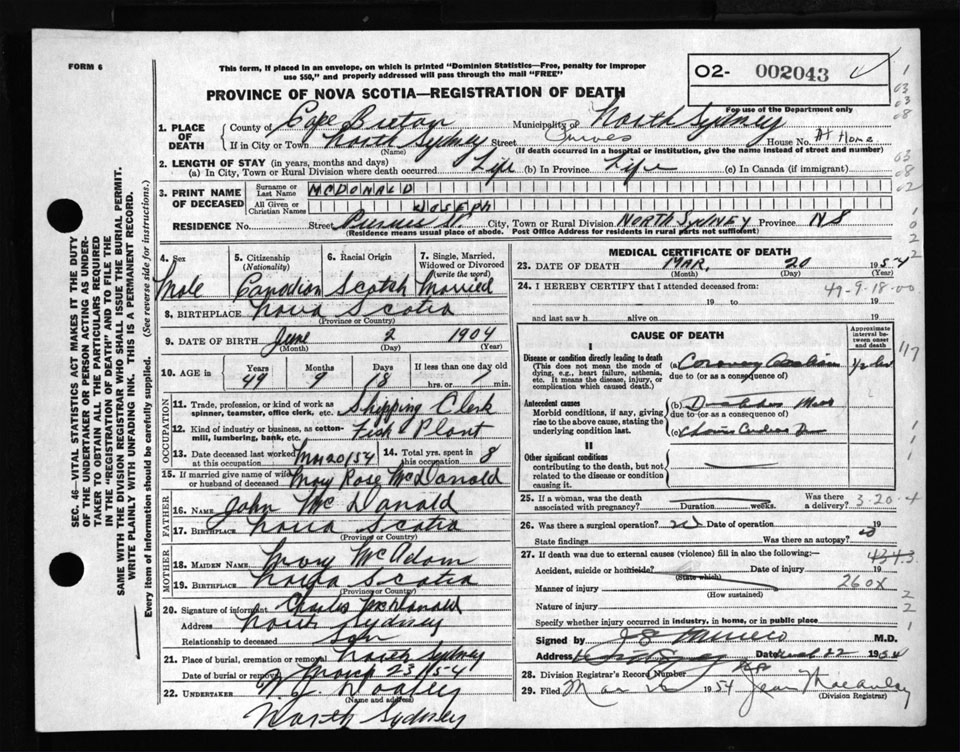 FORM 6
This form, if placed in an envelope, on which is printed "Dominion Statistics—Free, penalty for improper
use $50," and properly addressed will pass through the mail "FREE"
O2- 002043
PROVINCE OF NOVA SCOTIA—REGISTRATION OF DEATH
For use of the Department only
1. PLACE OF DEATH
County of Cape Breton Municipality of North Sydney
If in City or Town North Sydney Street House No. At Home
(Name) (If death occurred in a hospital or institution, give the name instead of street and number)
2. LENGTH OF STAY (in years, months and days)
(a) In City, Town or Rural Division where death occurred Life (b) In Province Life (c) In Canada (if immigrant)
3. PRINT NAME OF DECEASED
Surname or Last Name MCDONALD
All Given or Christian Names JOSEPH
RESIDENCE No. Street St. City, Town or Rural Division NORTH SYDNEY Province NS
(Residence means usual place of abode. Post Office Address for residents in rural parts not sufficient)
SEC. 46—VITAL STATISTICS ACT MAKES IT THE DUTY
OF THE UNDERTAKER OR PERSON ACTING AS UNDER-
TAKER TO OBTAIN ALL THE PARTICULARS REQUIRED
IN THE "REGISTRATION OF DEATH" AND TO FILE THE
SAME WITH THE DIVISION REGISTRAR WHO SHALL ISSUE THE BURIAL PERMIT.
WRITE PLAINLY WITH UNFADING INK. THIS IS A PERMANENT RECORD.
Every item of information should be carefully supplied. (See reverse side for instructions.)
4. Sex
Male
5. Citizenship
(Nationality)
Canadian
6. Racial Origin
Scotch
7. Single, Married,
Widowed or Divorced
(write the word)
Married
8. BIRTHPLACE Nova Scotia
(Province or Country)
9. DATE OF BIRTH June 2 1904
(Month) (Day) (Year)
10. AGE in
Years Months Days If less than one day old
49 9 18 hrs. or min.
OCCUPATION
11. Trade, profession, or kind of work as
spinner, teamster, office clerk, etc. Shipping Clerk
12. Kind of industry or business, as cotton-
mill, lumbering, bank, etc. Fish Plant
13. Date deceased last worked
at this occupation Mar 20/54
14. Total yrs. spent in
this occupation 8
15. If married give name of wife
or husband of deceased Mary Rose McDonald
FATHER
16. Name John McDonald
17. Birthplace Nova Scotia
(Province or Country)
MOTHER
18. MAIDEN NAME Mary McAdam
19. BIRTHPLACE Nova Scotia
(Province or Country)
20. Signature of informant Charles McDonald
Address North Sydney
Relationship to deceased Son
21. Place of burial, cremation or removal North Sydney
Date of burial or removal March 23/54
22. UNDERTAKER
(Name and address)
North Sydney
MEDICAL CERTIFICATE OF DEATH
23. DATE OF DEATH MAR. 20 1954
(Month) (Day) (Year)
24. I HEREBY CERTIFY that I attended deceased from:
49-9-18-00
19 to 19
and last saw h alive on 19
CAUSE OF DEATH
Approximate
interval be-
tween onset
and death
I
Disease or condition directly leading to death
(This does not mean the mode of
dying, e.g., heart failure, asthenia,
etc. It means the disease, injury, or
complication which caused death.
(a) Coronary
due to (or as a consequence of)
Antecedent causes
Morbid conditions, if any, giving
rise to the above cause, stating the
underlying condition last.
(b) Diabetes
due to (or as a consequence of)
(c)
II
Other significant conditions
contributing to the death, but not
related to the disease or condition
causing it.
25. If a woman, was the death
associated with pregnancy? Duration weeks. Was there
a delivery?
3-20-4
26. Was there a surgical operation? no Date of operation 19
State findings Was there an autopsy? no
27. If death was due to external causes (violence) fill in also the following:—
Accident, suicide or homicide? Date of injury 19
(State which)
Manner of injury 260X
(How sustained)
Nature of injury
Specify whether injury occurred in industry, in home, or in public place
Signed by M.D.
Address Date March 22 1954
28. Division Registrar's Record Number
29. Filed 1954 Jean MacAulay
(Division Registrar)